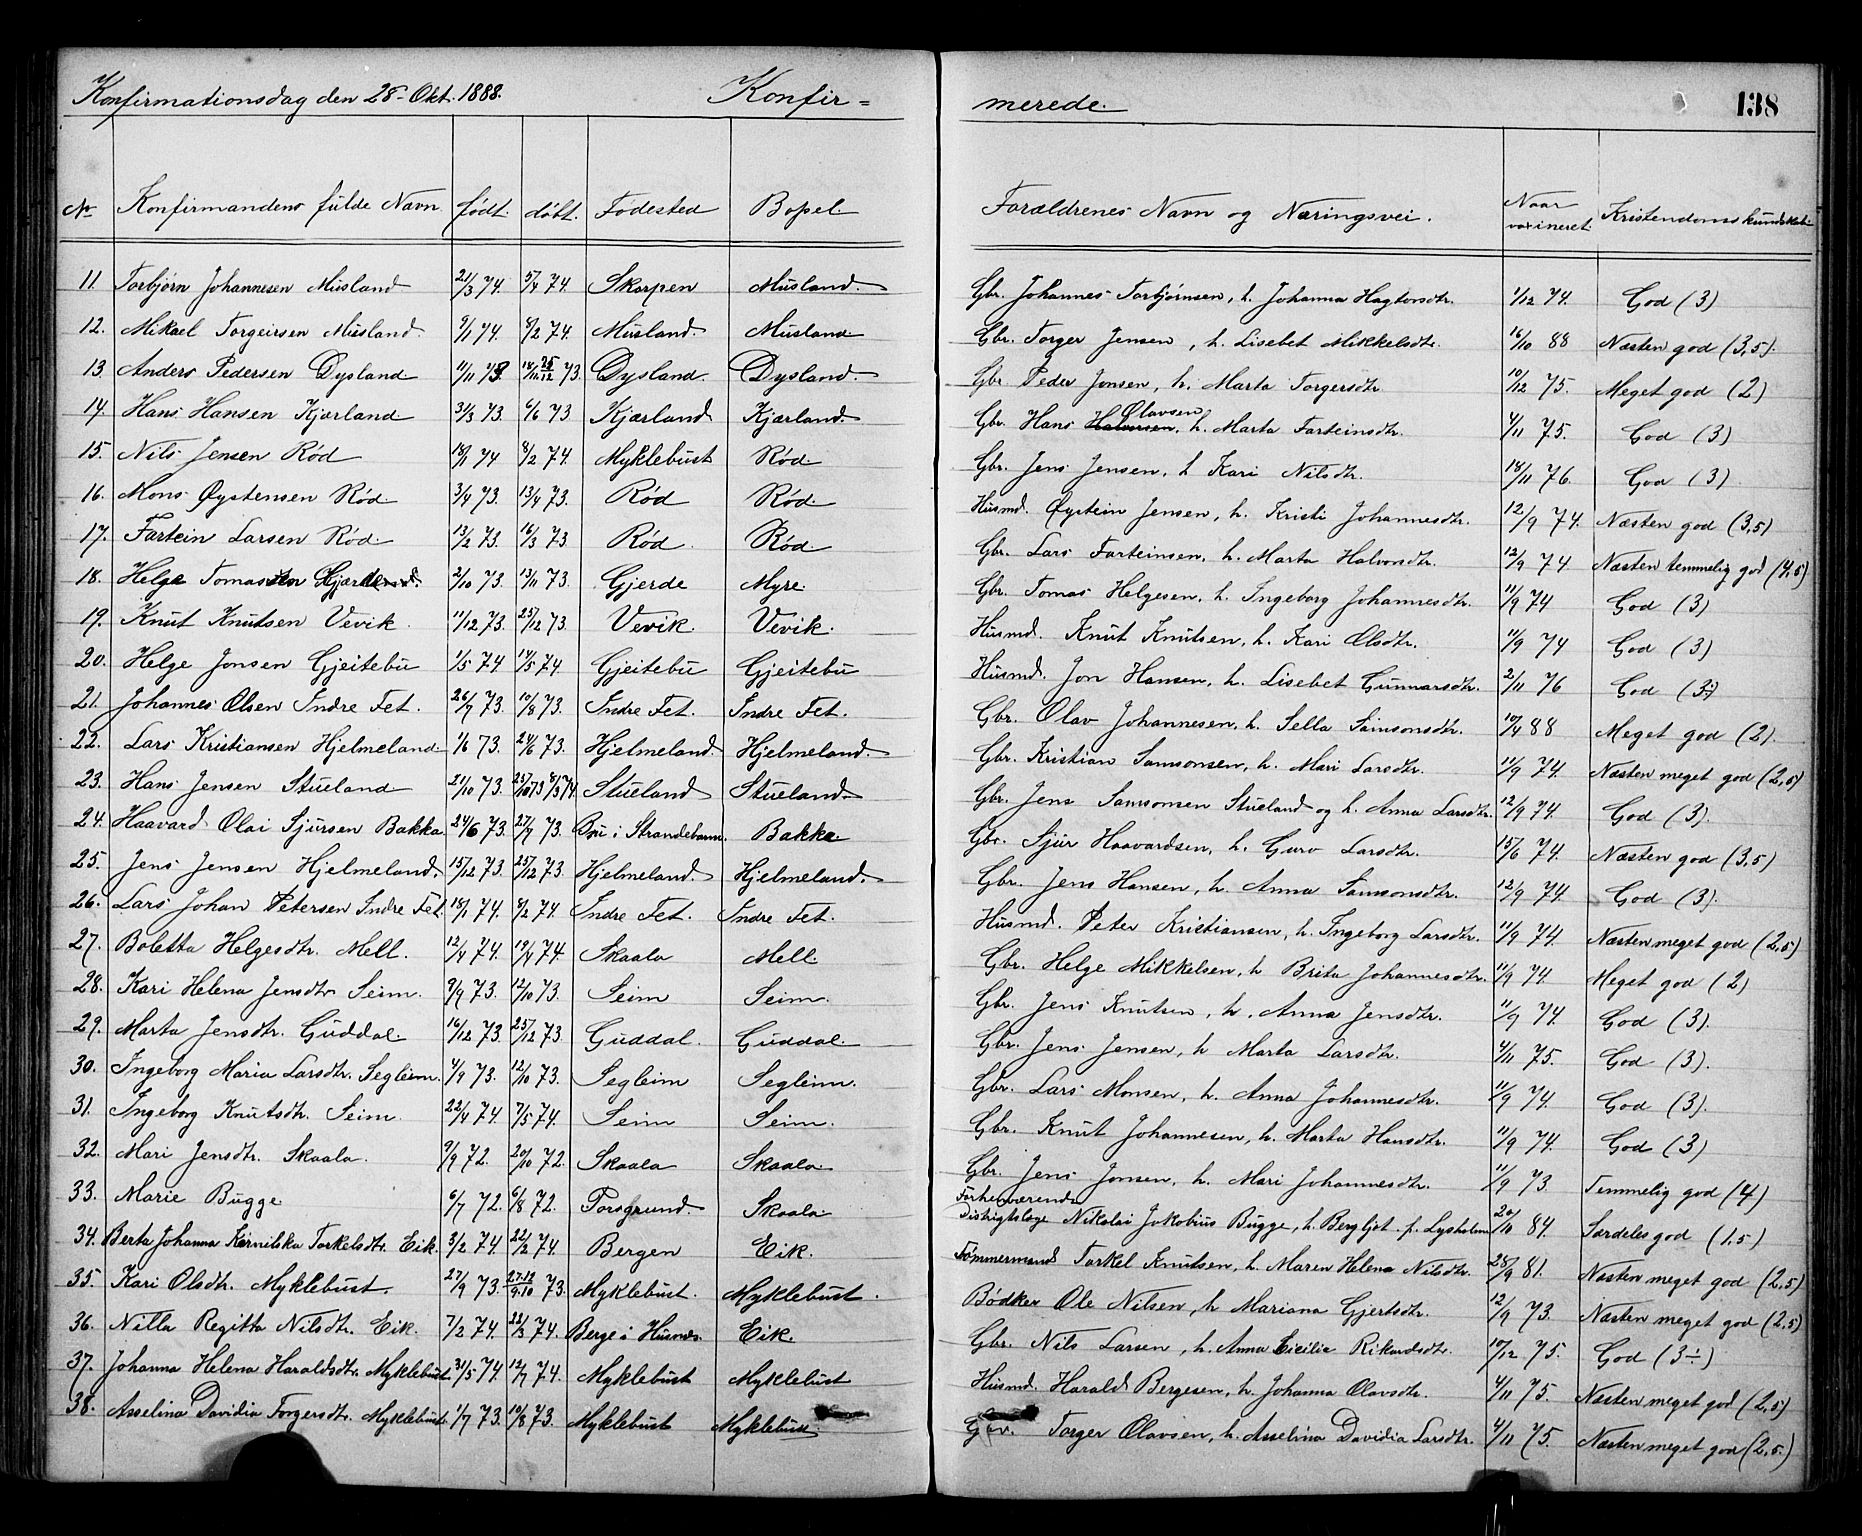 Konfirmationsdag den 28- Okt. 1888. Konfir= merede. 138
No Konfirmandens fulde Navn født. døbt. Fødested Bopel. Forældrenes Navn og Næringsvei. Naar vaxineret. Kristendomskundskab
11. Torbjørn Johannesen Musland 21/3 74. 5/4 74. Skorpen Musland. Gbr. Johannes Torbjørnsen, h. Johanna Hagtorsdtr. 1/12 74. God (3)
12. Mikael Torgeirsen Musland. 9/1 74. 8/2 74. Musland. Musland Gbr. Torger Jensen, h. Lisebet Mikkelsdtr. 16/10 88 Næsten god (3,5).
13. Anders Pedersen Dysland. 11/11 73 16/11 25/12 73. Dysland. Dysland. Gbr Peder Jonsen, h. Marta Torgersdtr. 10/12 75. Meget god (2)
14. Hans Hansen Kjærland 3/3 73. 6/6 73 Kjærland Kjærland. Gbr. Hans Halvorsen Olavsen, h. Marta Farteinsdtr. 4/11 75. God (3)
15. Nils Jensen Rød 18/1 74 8/2 74. Myklebust Rød. Gbr. Jens Jensen, h Kari Nilsdtr. 18/11 76. God (3)
16. Mons Øystensen Rød. 3/4 73. 13/4 73. Rød Rød. Husmd. Øystein Jensen, h. Kristi Johannesdtr. 12/9 74. Næsten god (3,5)
17. Fartein Larsen Rød. 13/2 73. 16/3 73 Rød. Rød. Gbr. Lars Farteinsen, h. Marta Halvorsdtr. 12/9 74 Næsten temmelig god (4,5)
18. Helge Tomassen Gjærde. 2/10 73. 13/11 73. Gjerde Myre. Gbr. Tomas Helgesen, h. Ingeborg Johannesdtr. 11/9 74 God (3)
19. Knut Knutsen Vevik. 11/12 73. 25/12 73. Vevik. Vevik. Husmd. Knut Knutsen, h. Kari Olsdtr. 11/9 74 God (3)
20. Helge Jonsen Gjeitebu 1/5 74 14/5 74 Gjeitebu Gjeitebu Husmd. Jon Hansen, h. Lisebet Gunnarsdtr. 2/11 76 God (3)
21. Johannes Olsen Indre Fet. 26/7 73. 10/8 73. Indre Fet. Indre Fet. Gbr. Olav Johannesen, h. Sella Samsonsdtr. 10/4 88 Meget god (2).
22. Lars Kristiansen Hjelmeland. 1/6 73. 24/6 73. Hjelmeland. Hjelmeland. Gbr. Kristian Samsonsen, h. Mari Larsdtr. 11/9 74. Næsten meget god (2,5)
23. Hans Jensen Stueland 21/10 73. 25/10 73 8/3 74 Stueland Stueland. Gbr. Jens Samsonsen Stueland og h. Anna Larsdtr. 12/9 74. God (3).
24. Haavard Olai Sjursen Bakka. 24/6 73. 27/7 73. Bru i Strandebarm. Bakka. Gbr. Sjur Haavardsen, h. Guro Larsdtr. 15/6 74. Næsten god (3,5)
25. Jens Jensen Hjelmeland. 15/12 73. 25/12 73. Hjelmeland. Hjelmeland. Gbr. Jens Hansen, h. Anna Samsonsdtr. 12/9 74. God (3).
26. Lars Johan Petersen Indre Fet. 18/1 74. 8/2 74. Indre Fet. Indre Fet. Husmd. Peter Kristiansen, h. Ingeborg Larsdtr. 11/9 74. Næsten meget god (2,5)
27. Boletta Helgesdtr. Mell. 12/4 74. 19/4 74. Skaala Mell. Gbr. Helge Mikkelsen, h Brita Johannesdtr. 11/9 74. Meget god (2)
28. Kari Helena Jensdtr. Seim. 9/9 73. 12/10 73. Seim Seim. Gbr. Jens Knutsen, h. Anna Jensdtr. 11/9 74. God (3).
29. Marta Jensdtr. Guddal. 16/12 73. 25/12 73. Guddal. Guddal. Gbr. Jens Jensen, h Marta Larsdtr. 4/11 75. God (3).
30. Ingeborg Maria Larsdtr. Segleim. 4/9 73. 12/10 73. Segleim Segleim. Gbr. Lars Monsen, h. Anna Johannesdtr. 11/9 74. God (3).
31. Ingeborg Knutsdtr. Seim. 22/4 74. 7/5 74. Seim Seim. Gbr. Knut Johannesen, h. Marta Hansdtr. 11/9 74. God (3)
32. Mari Jensdtr. Skaala. 9/9 72. 20/10 72. Skaala Skaala. Gbr. Jens Jonsen, h. Mari Johannesdtr. 11/9 73. Temmelig god (4)
33. Marie Bugge 6/7 72. 6/8 72. Porsgrund. Skaala Forhenværende Distrigtslæge Nikolai Jakobius Bugge, h. Bergljot f. Lysholm 20/10 84. Særdeles god (1,5)
34. Berta Johanna Torkelsdtr. Eik. 3/2 74. 22/2 74. Bergen Eik. Tømmermand Torkel Knutsen, h. Maren Helena Nilsdtr. 28/9 81. Næsten meget god (2,5)
35. Kari Olsdtr. Myklebust. 27/9 73. 27.12 9.10 73. Myklebust. Myklebust. Bødker Ole Nilsen, h Mariana Gjertsdtr. 12/9 73. Næsten meget god (2,5)
36. Nilla Regitta Nilsdtr. Eik. 7/2 74. 22/3 74. Berge i Husnes. Eik. Gbr. Nils Larsen, h. Anna Cicilia Rikardsdtr. 10/12 75. God (3÷)
37. Johanna Helena Haraldsdtr. Myklebust 31/5 74. 12/7 74. Myklebust Myklebust Husmd. Harald Bergesen, h. Johanna Olavsdtr. 4/11 75. Næsten meget god (2,5)
38. Asselina Davidia Torgersdtr. Myklebust. 1/7 73. 10/8 73. Myklebust Myklebust. Gbr. Torger Olavsen, h. Asselina Davidia Larsdtr. 4/11 75. Næsten meget god (2,5.)